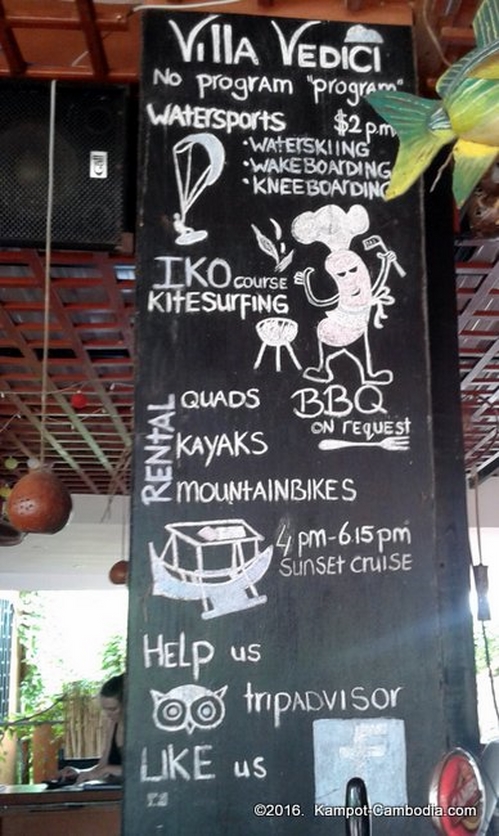 Villa Vedici
No program "program"
Watersports $2 p.m
·Waterskiing
·Wakeboarding
·Kneeboarding
IKO course
Kitesurfing
BBQ
on request
RENTAL
QUADS
KAYAKS
MOUNTAINBIKES
4 pm-6.15pm
Sunset cruise
HELP us
tripADVISOR
LIKE us
f
©2016. Kampot-Cambodia.com